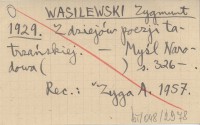 WASILEWSKI Zygmunt
1929. Z dziejów poezji ta-
trzańskiej. — Myśl Naro-
dowa ( ) s. 326 — .
Rec.: Zyga A. 1957.